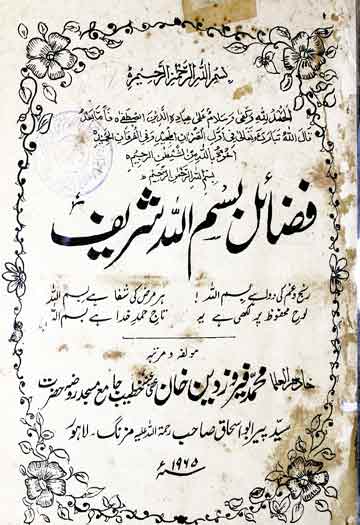 بسم اللہ الرحمٰن الرحیم ہ
الحمد للہ وکفیٰ وسلام علیٰ عبادہ الذین اصطفیٰ ہ فاما بعد
قال اللہ تبارک وتعالیٰ فی اول القرآن المجید وفی الفرقان الحمید ہ
اعوذ باللہ من الشیطٰن الرجیم ہ
بسم اللہ الرحمٰن الرحیم ہ
فضائل بسم اللہ شریف
رنج و غم کی دوا ہے بسم اللہ ! ہر مرض کی شفا ہے بسم اللہ
لوح محفوظ پر لکھی ہے یہ تاج حمد خدا ہے بسم اللہ
مولفہ و مرتبہ
خادم العلماء محمد فیروز دین خان خطیب جامع مسجد روضہ حضرت
سید پیر ابو اسحاق صاحب رحمۃ اللہ علیہ مزنگ - لاہور
۱۹۶۵ء